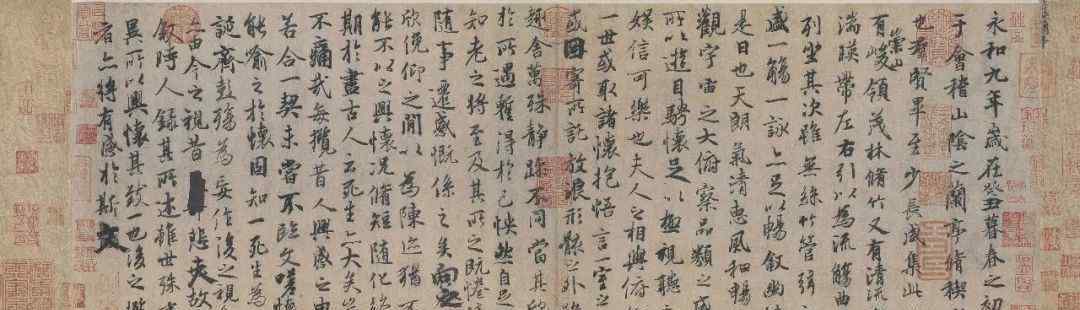 永和九年歲在癸丑暮春之初
于會稽山陰之蘭亭脩稧
也羣賢畢至少長咸集此
有崇山峻領茂林脩竹又有清流
湍暎帶左右引以為流觴曲
列坐其次雖無絲竹管弦
盛一觴一詠亦足以暢叙幽
是日也天朗氣清惠風和暢
觀宇宙之大俯察品類之盛
所以遊目騁懷足以極視聽
娛信可樂也夫人之相與俯
一世或取諸懷抱悟言一室之
或因寄所託放浪形骸之外
趣舍萬殊靜躁不同當其欣
於所遇蹔得於己怏然自足
知老之將至及其所之既惓
隨事遷感慨係之矣向之
欣俛仰之閒以為陳迹猶不
能不以之興懷況脩短隨化終
期於盡古人云死生亦大矣豈
不痛哉每攬昔人興感之由
若合一契未嘗不臨文嗟悼
能喻之於懷固知一死生為
誕齊彭殤為妄作後之視
亦由今之視昔悲夫故
叙時人錄其所述雖世殊事
異所以興懷其致一也後之攬
者亦將有感於斯文